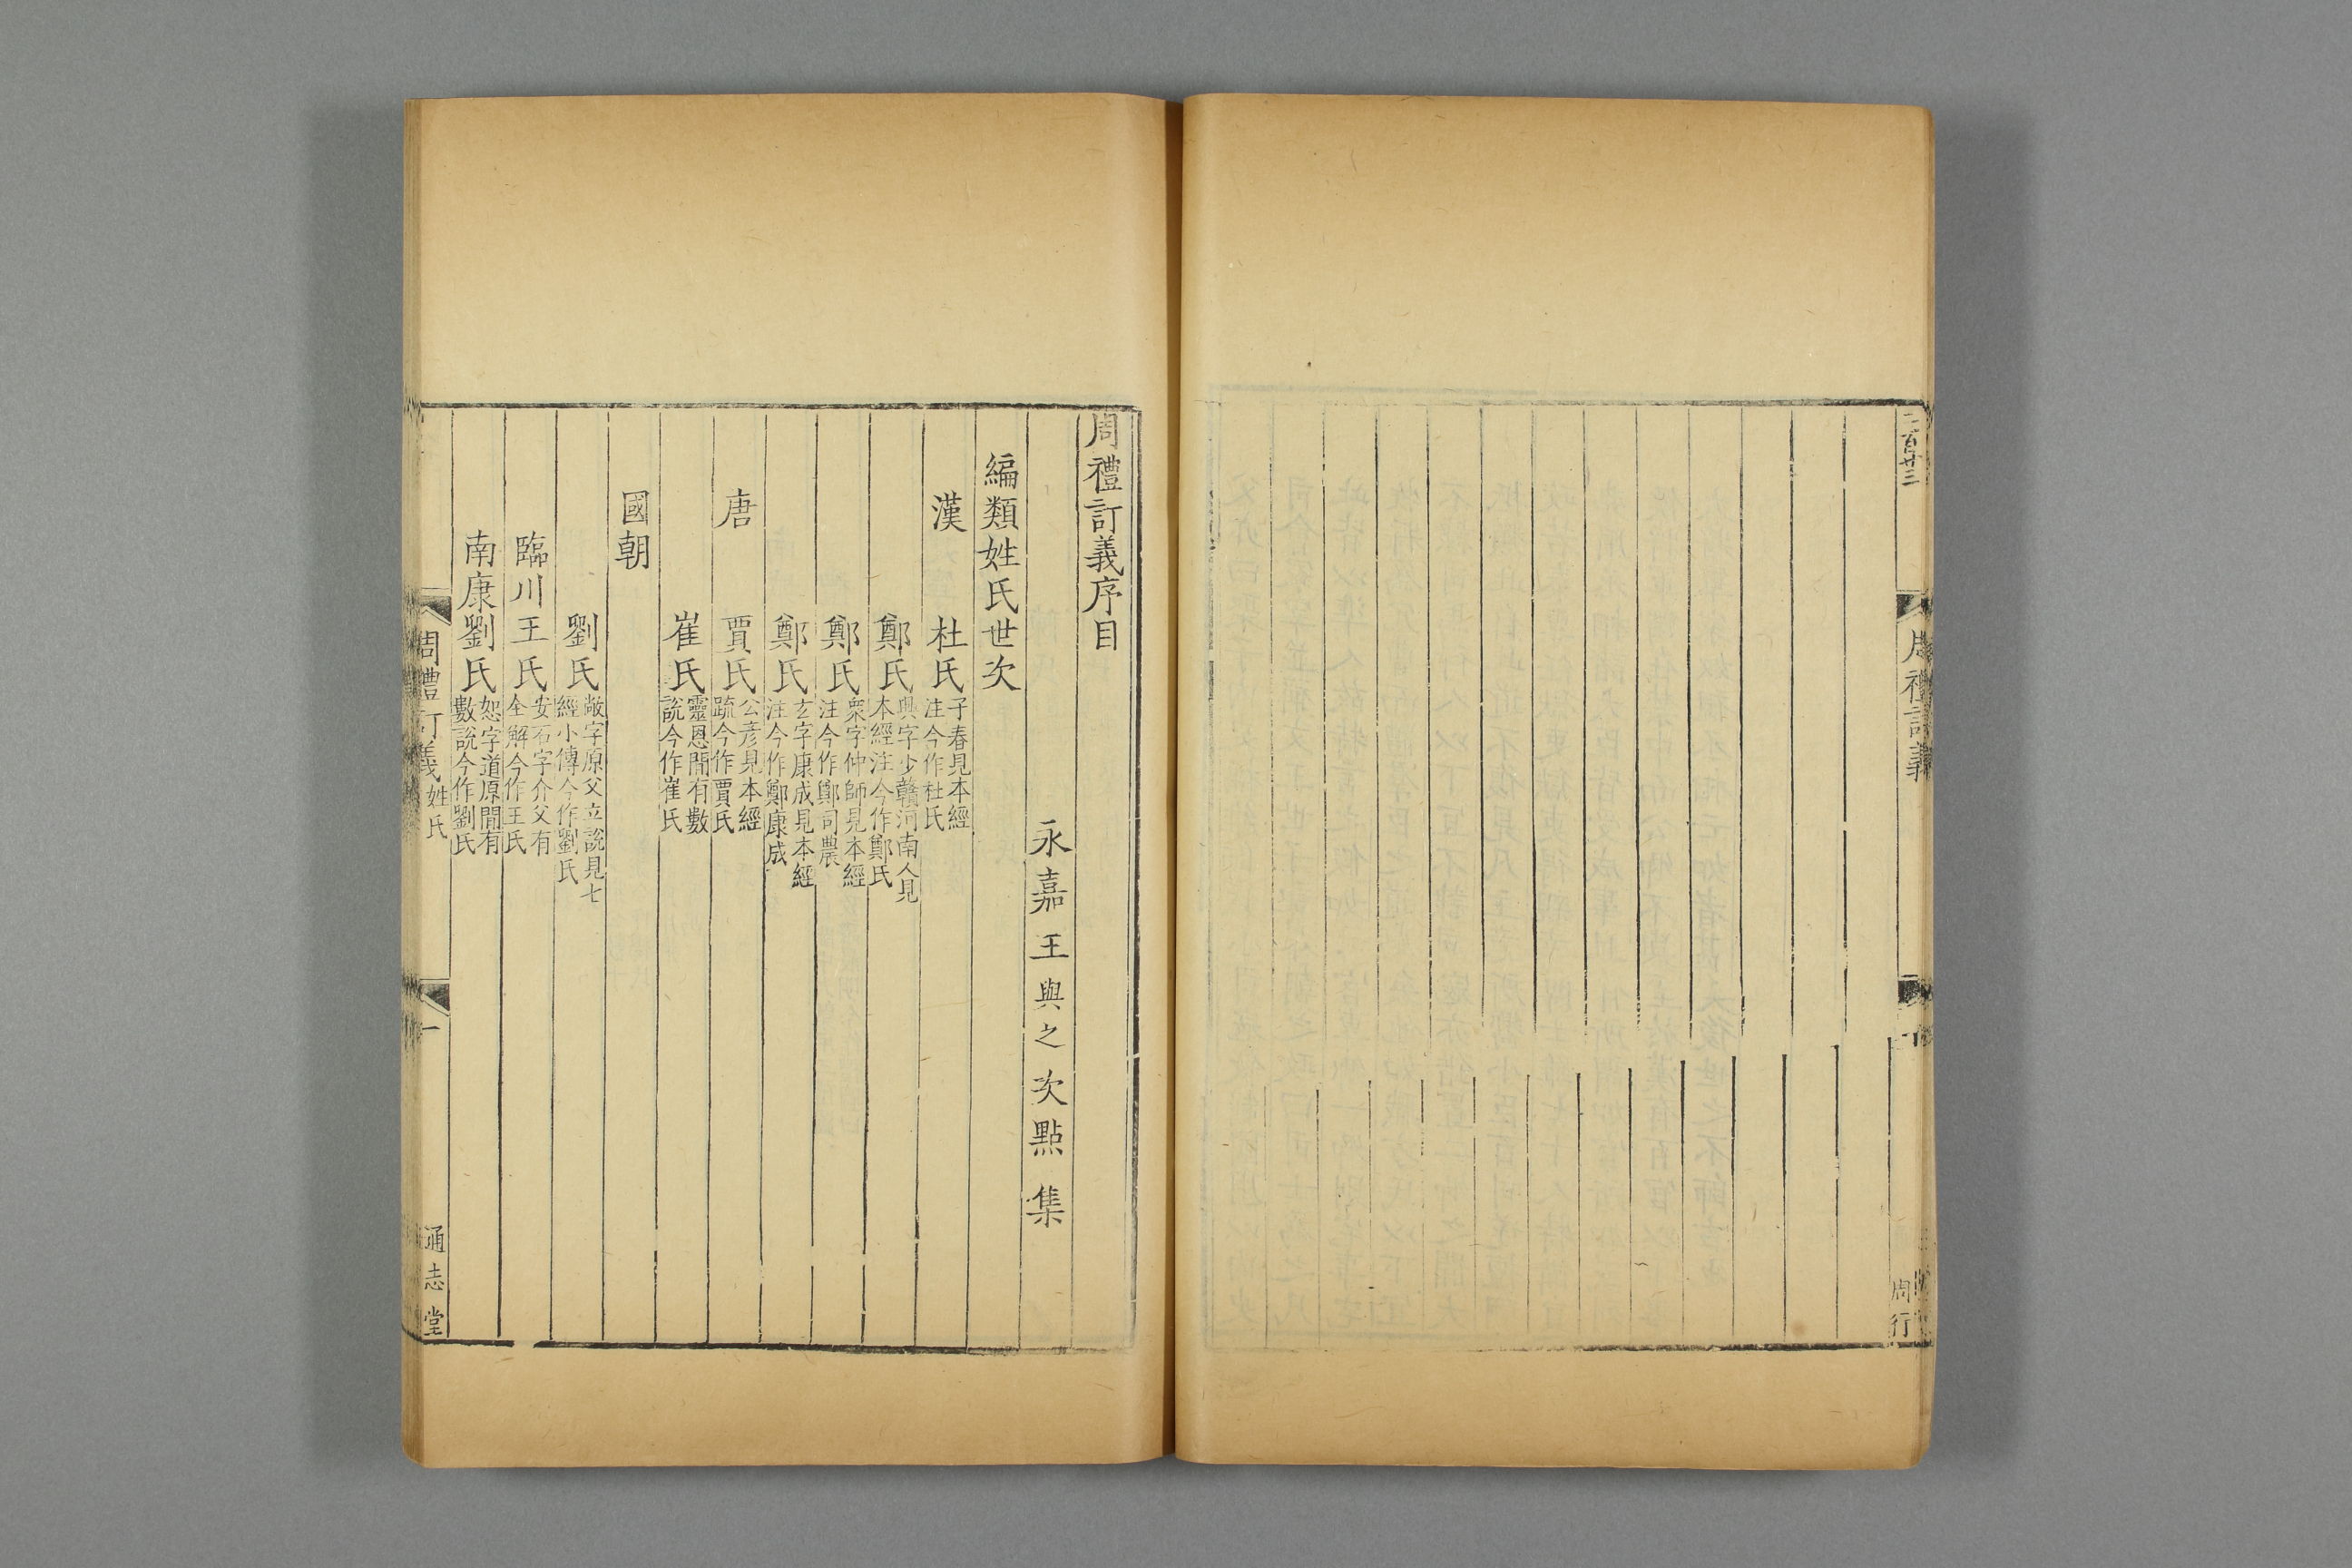 二百廿三
周禮訂義
周行
周禮訂義序目
永嘉王與之次點集
編類姓氏世次
漢
杜氏
子春見本經
注今作杜氏
鄭氏
興字少贛河南人見
本經注今作鄭氏
鄭氏
衆字仲師見本經
注今作鄭司農
鄭氏
玄字康成見本經
注今作鄭康成
唐
賈氏
公彥見本經
疏今作賈氏
崔氏
靈恩間有數
說今作崔氏
國朝
劉氏
敞字原父立說見七
經小傳今作劉氏
臨川王氏
安石字介父有
全解今作王氏
南康劉氏
恕字道原間有
數說今作劉氏
周禮訂義 姓氏
一
通志堂